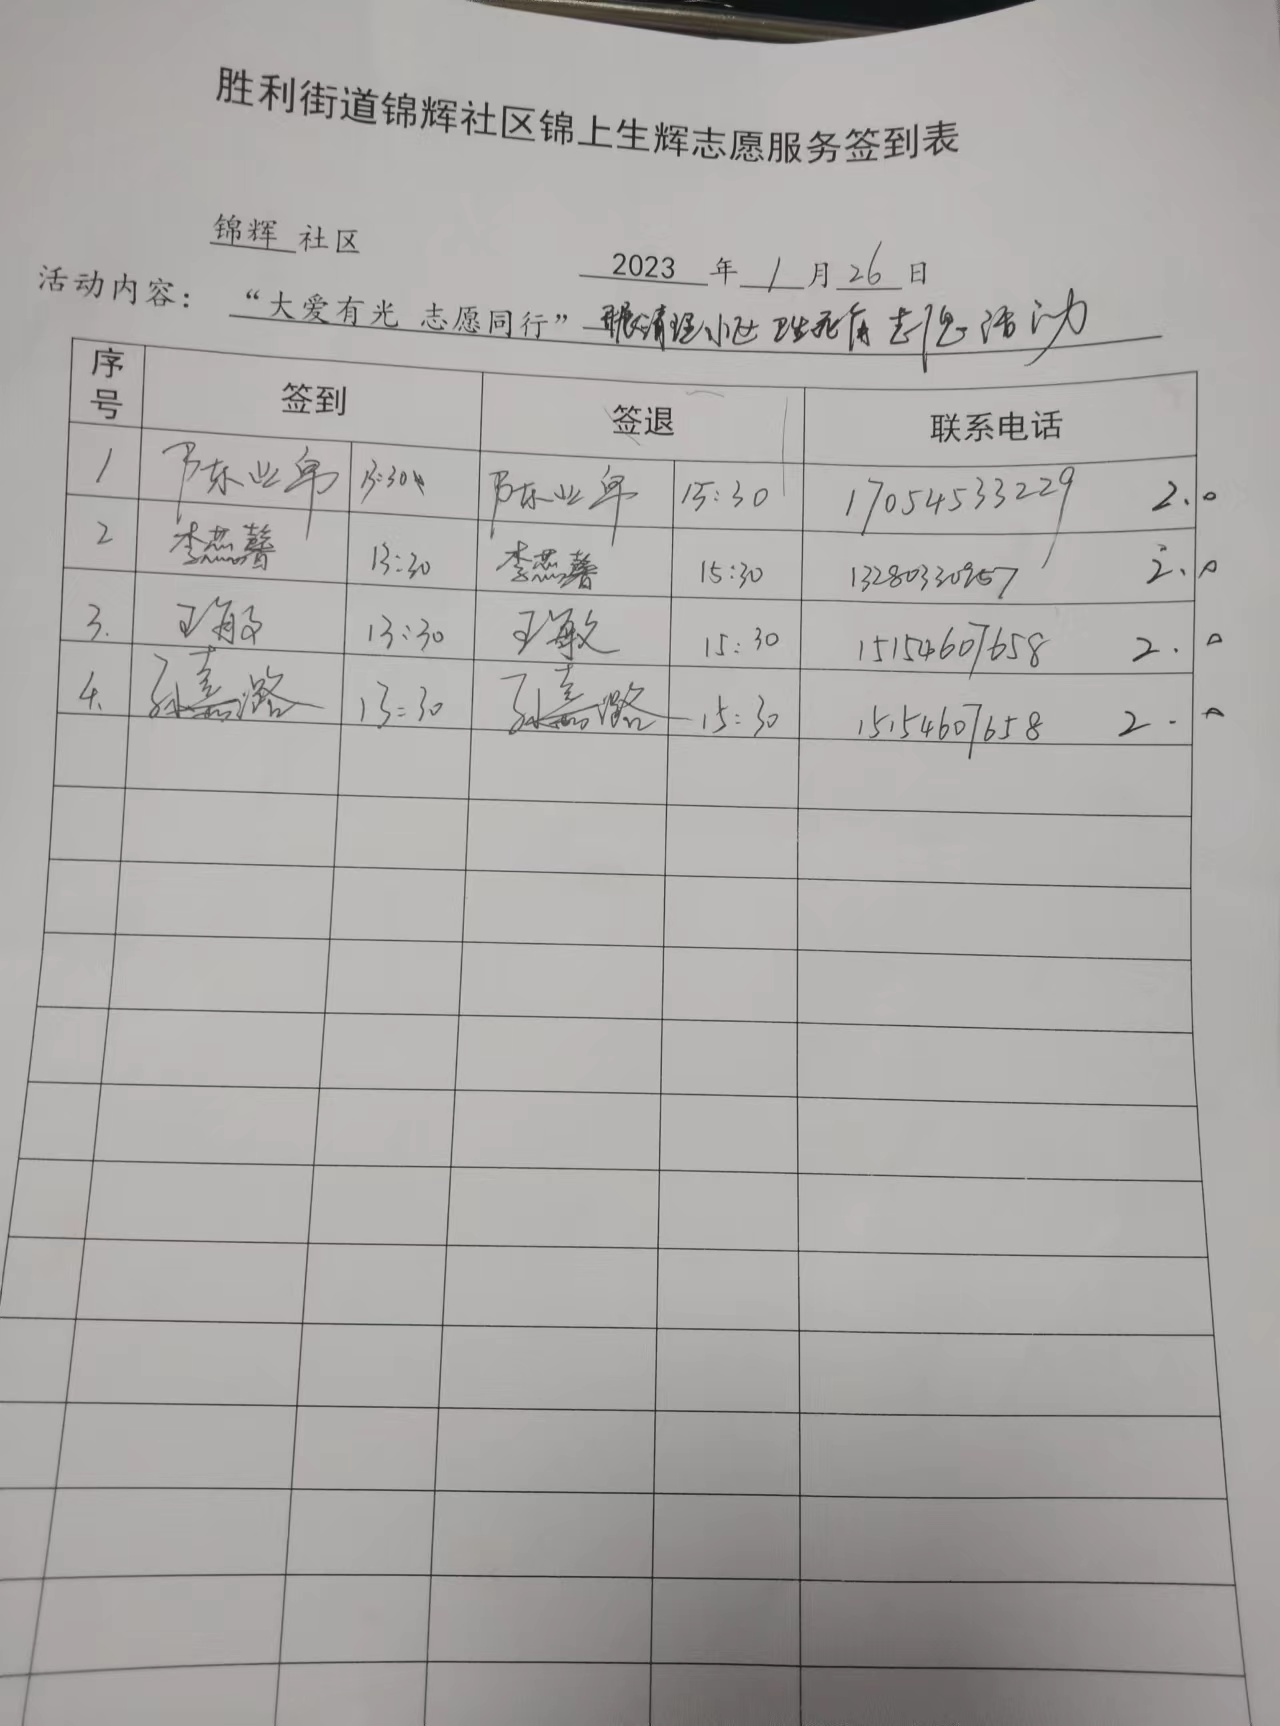 胜利街道锦辉社区锦上生辉志愿服务签到表
锦辉 社区
2023 年 1 月 26 日
活动内容: “大爱有光 志愿同行” 清理小区卫生死角志愿活动
序号 签到 签退 联系电话
1 13:30 15:30 17054533229 2.0
2 李燕馨 13:30 李燕馨 15:30 13280330957 2.0
3. 王敏 13:30 王敏 15:30 15154607658 2.0
4. 孙嘉潞 13:30 孙嘉潞 15:30 15154607658 2.0